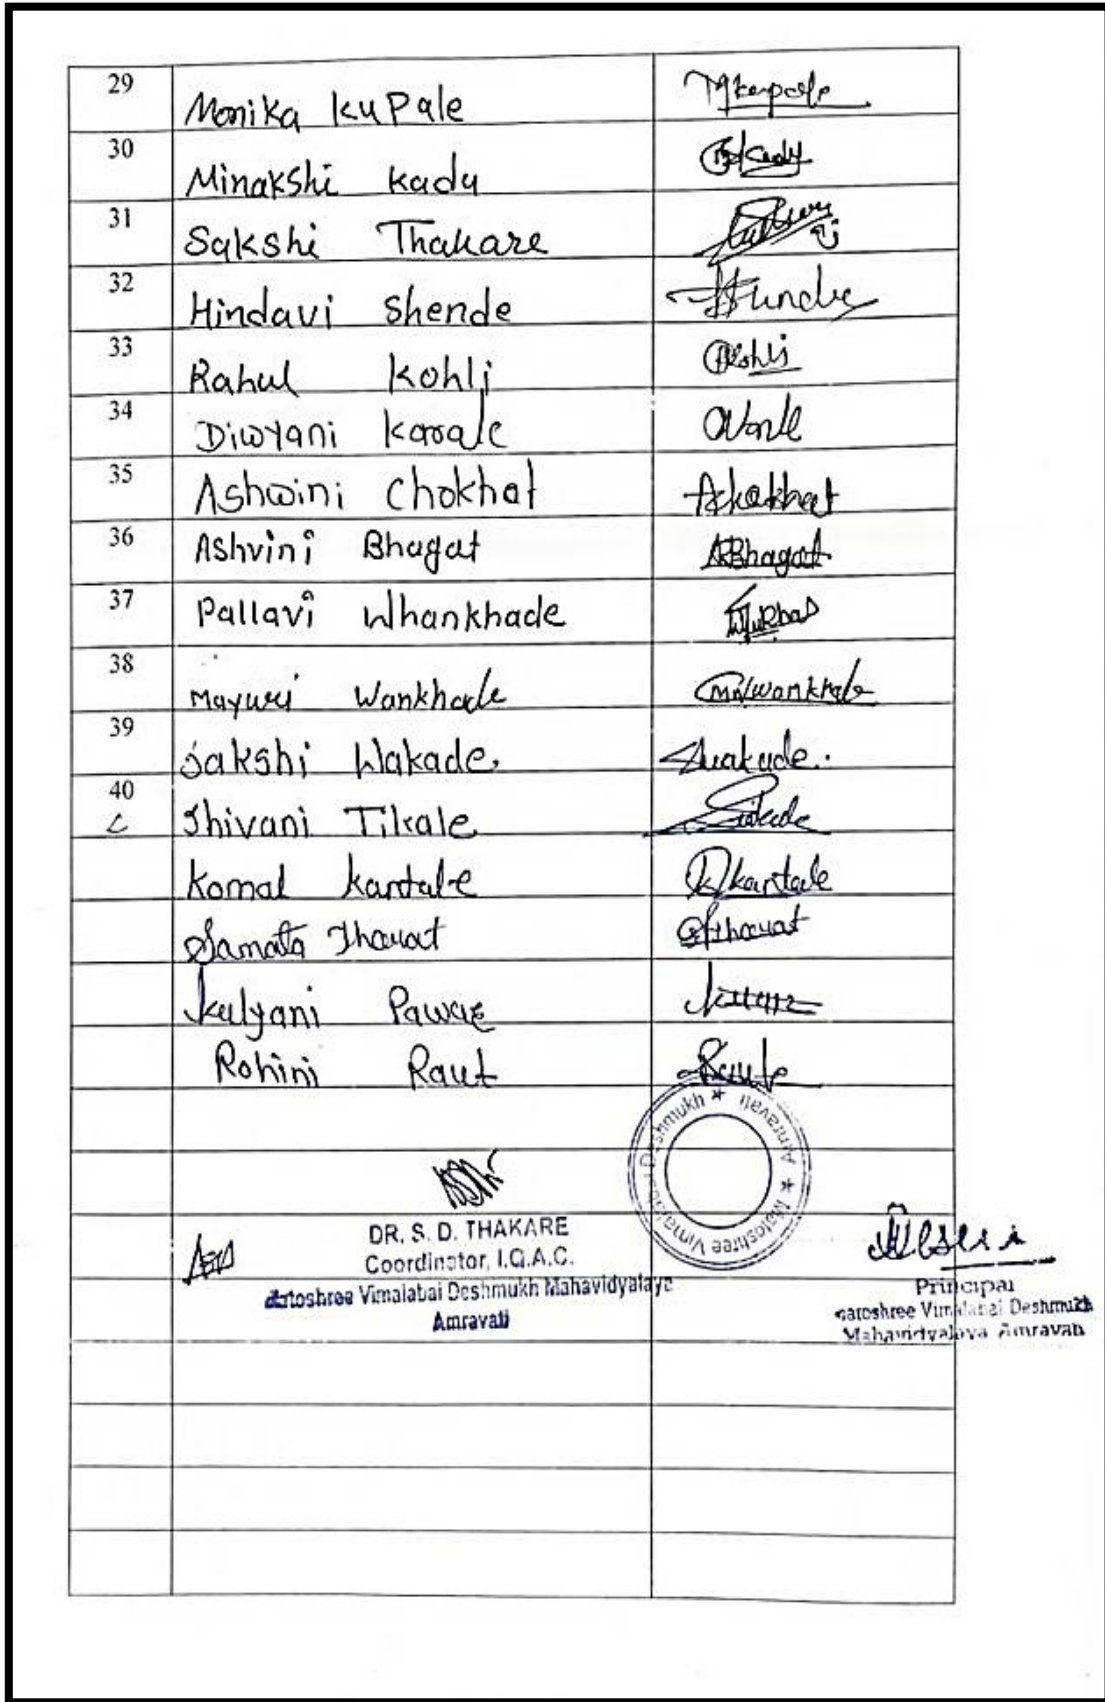 29 Monika Kupale Mkupale
30 Minakshi Kadu
31 Sakshi Thakare
32 Hindavi Shende
33 Rahul Kohli
34 Diwyani Karale
35 Ashwini Chokhat
36 Ashvini Bhagat ABhagat
37 Pallavi Whankhade
38 Mayuri Wankhade
39 Sakshi Wakade.
40 Shivani Tikale
Komal Kartale Kartale
Samata Tharat Sftharat
Kalyani Pawar
Rohini Raut
Matoshree Vimalabai Deshmukh ★ Amravati ★
DR. S. D. THAKARE
Coordinator, I.Q.A.C.
Matoshree Vimalabai Deshmukh Mahavidyalaya
Amravati
Principal
Matoshree Vimalabai Deshmukh
Mahavidyalaya Amravati